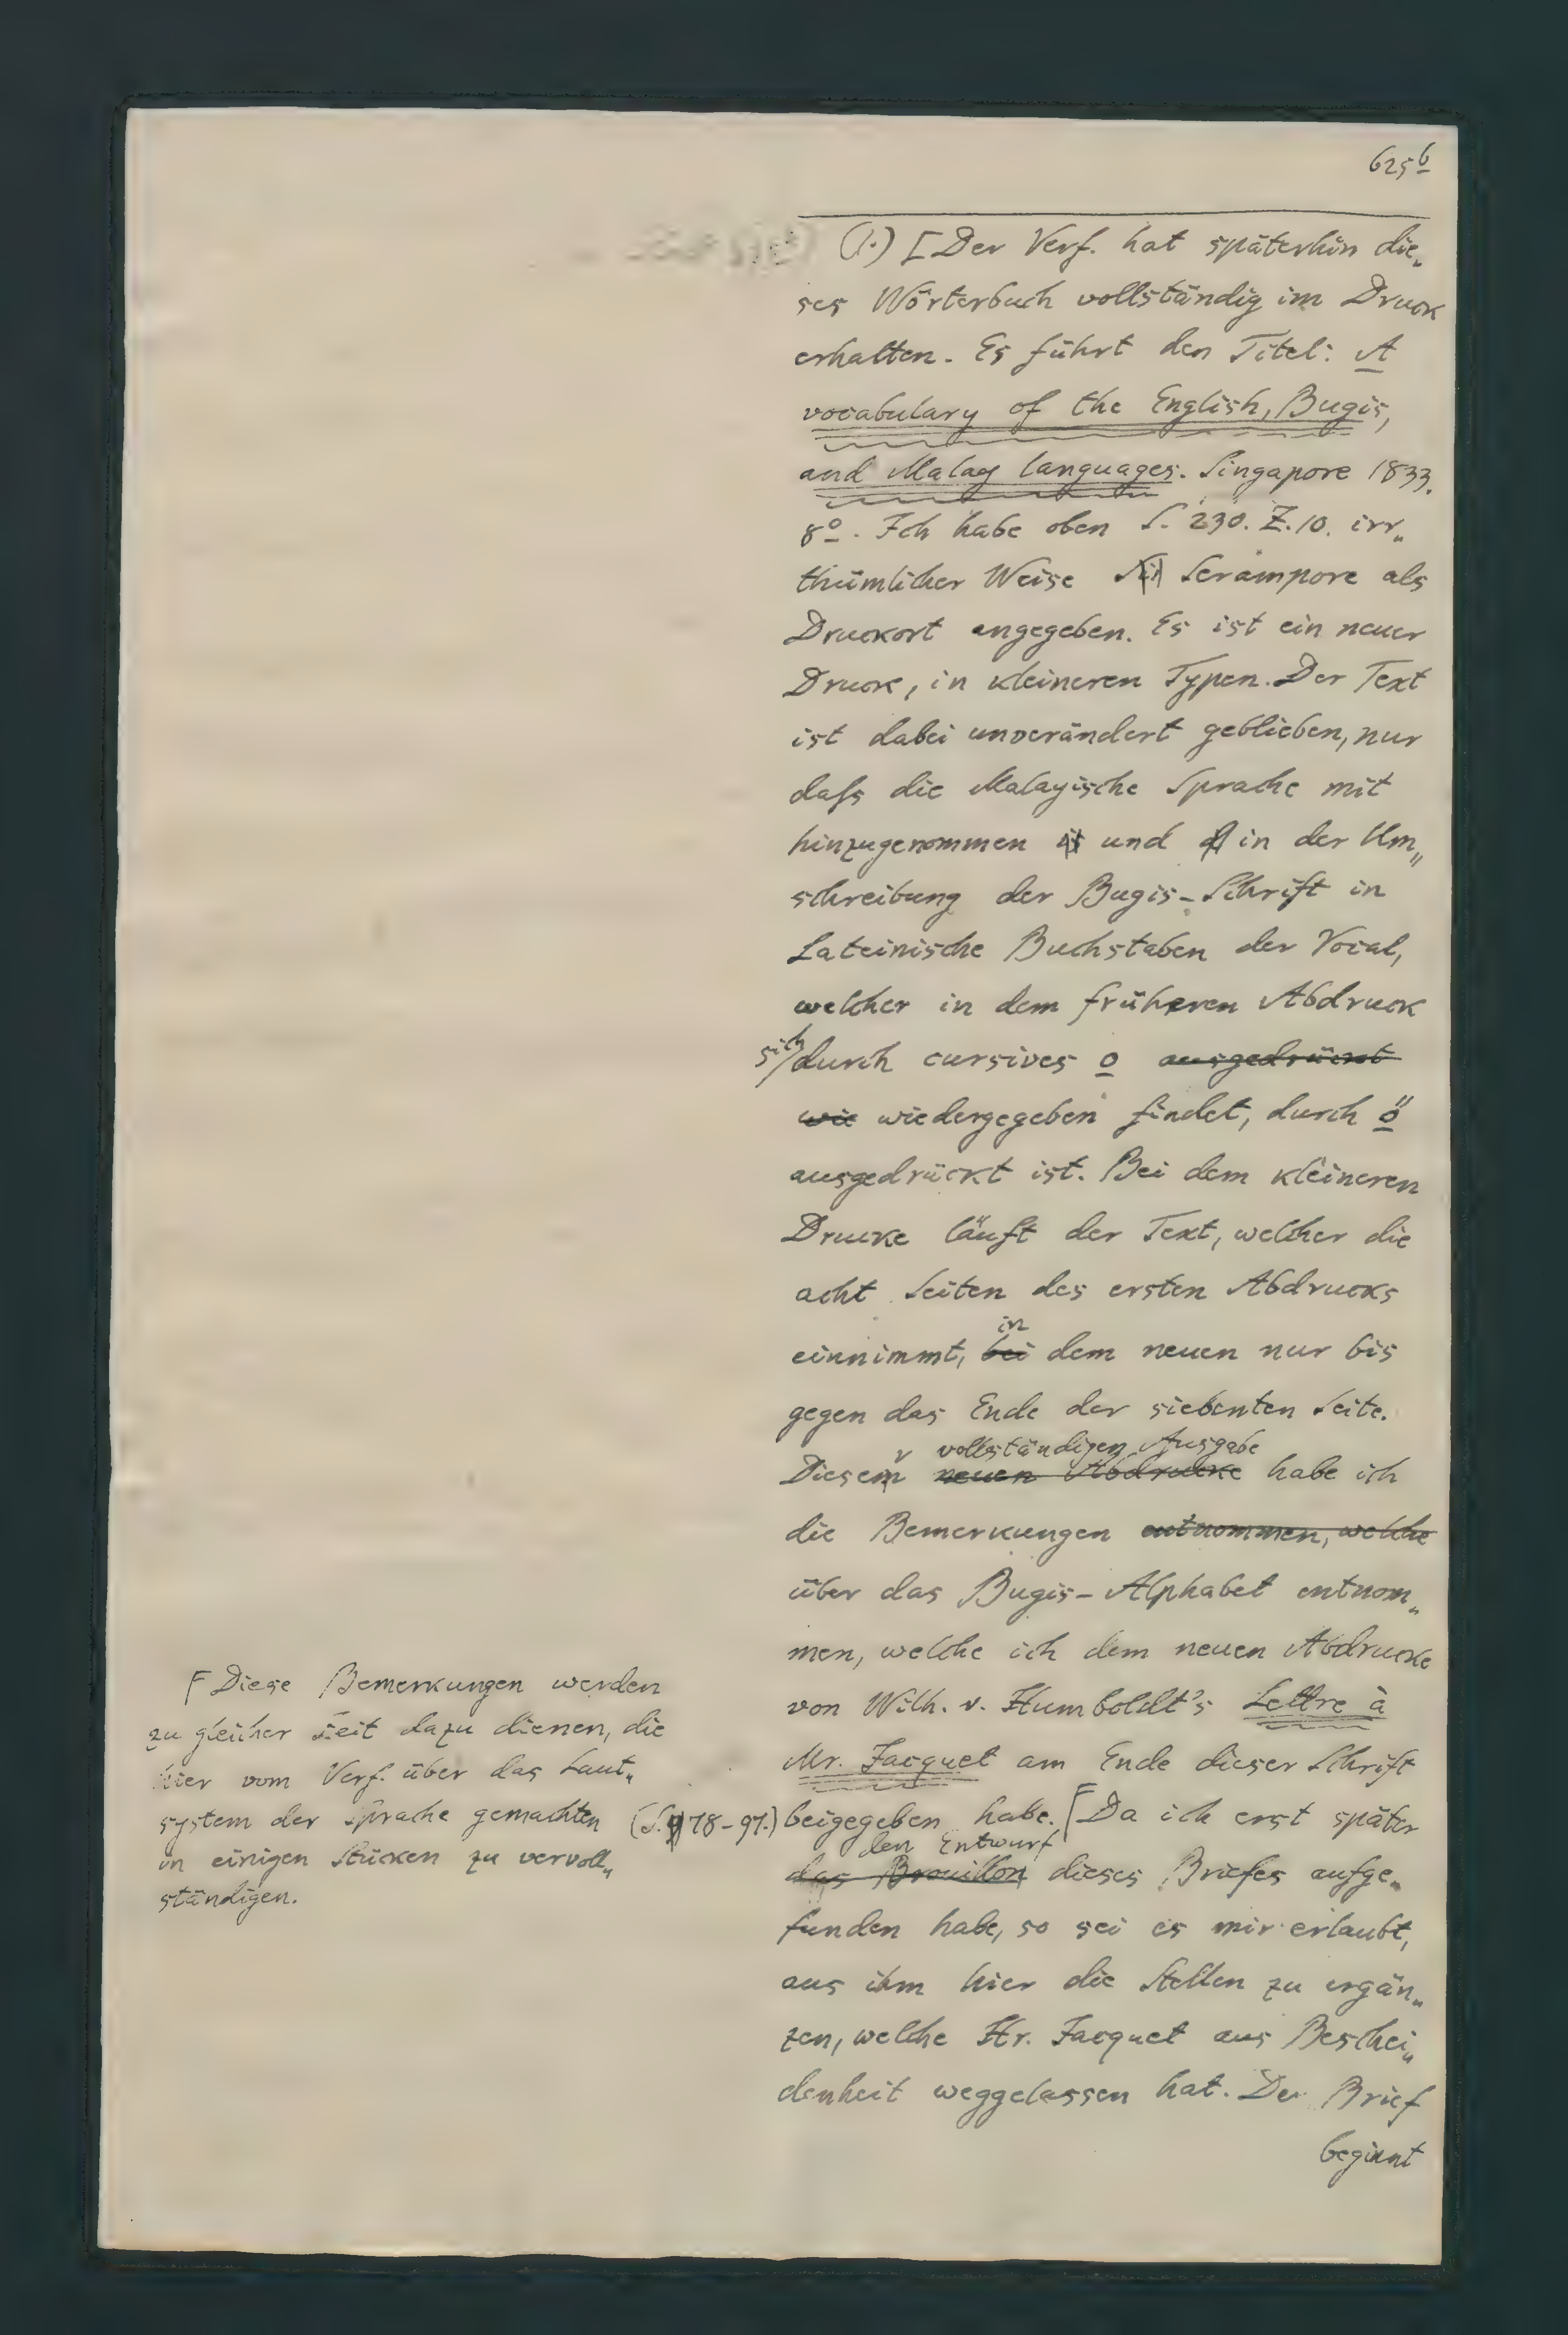 625b
(1.) [Der Verf. hat späterhin die„
ses Wörterbuch vollständig im Druck
erhalten. Es führt den Titel: A
vocabulary of the English, Bugis,
and Malay languages. Singapore 1833.
8o. Ich habe oben S. 230. Z. 10. irr„
thümlicher Weise Si Serampore als
Druckort angegeben. Es ist ein neuer
Druck, in kleineren Typen. Der Text
ist dabei unverändert geblieben, nur
daſs die Malayische Sprache mit
hinzugenommen ist und in der Um„
schreibung der Bugis-Schrift in
Lateinische Buchstaben der Vocal,
welcher in dem früheren Abdruck
sich durch cursives o ausgedrückt
wie wiedergegeben findet, durch ö
ausgedrückt ist. Bei dem kleineren
Drucke läuft der Text, welcher die
acht Seiten des ersten Abdrucks
in
einnimmt, bei dem neuen nur bis
gegen das Ende der siebenten Seite.
r vollständigen Ausgabe
Diesem neuen Abdrucke habe ich
die Bemerkungen entnommen, welche
über das Bugis-Alphabet entnom„
men, welche ich dem neuen Abdrucke
von Wilh. v. Humboldt's Lettre à
Mr. Jacquet am Ende dieser Schrift
beigegeben habe. Γ Da ich erst später
den Entwurf
das Brouillon dieses Briefes aufge„
funden habe, so sei es mir erlaubt,
aus ihm hier die Stellen zu ergän„
zen, welche Hr. Jacquet aus Beschei„
denheit weggelassen hat. Der Brief
beginnt
Γ Diese Bemerkungen werden
zu gleicher Zeit dazu dienen, die
hier vom Verf. über das Laut„
system der Sprache gemachten (S. 78-97.)
in einigen Stücken zu vervoll„
ständigen.